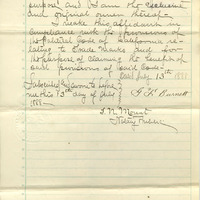 purpose and I am the
and original owner thereof
I make this affidavit in
compliance with the provisions of
the Political Code of California re-
lating to Trade Marks and for
the purpose of claiming the benefits of
said provisions of said Code.
July 13th 1888
Subscribed & sworn to before
me this 13th day of July
1888.
Burnett
Notary Public